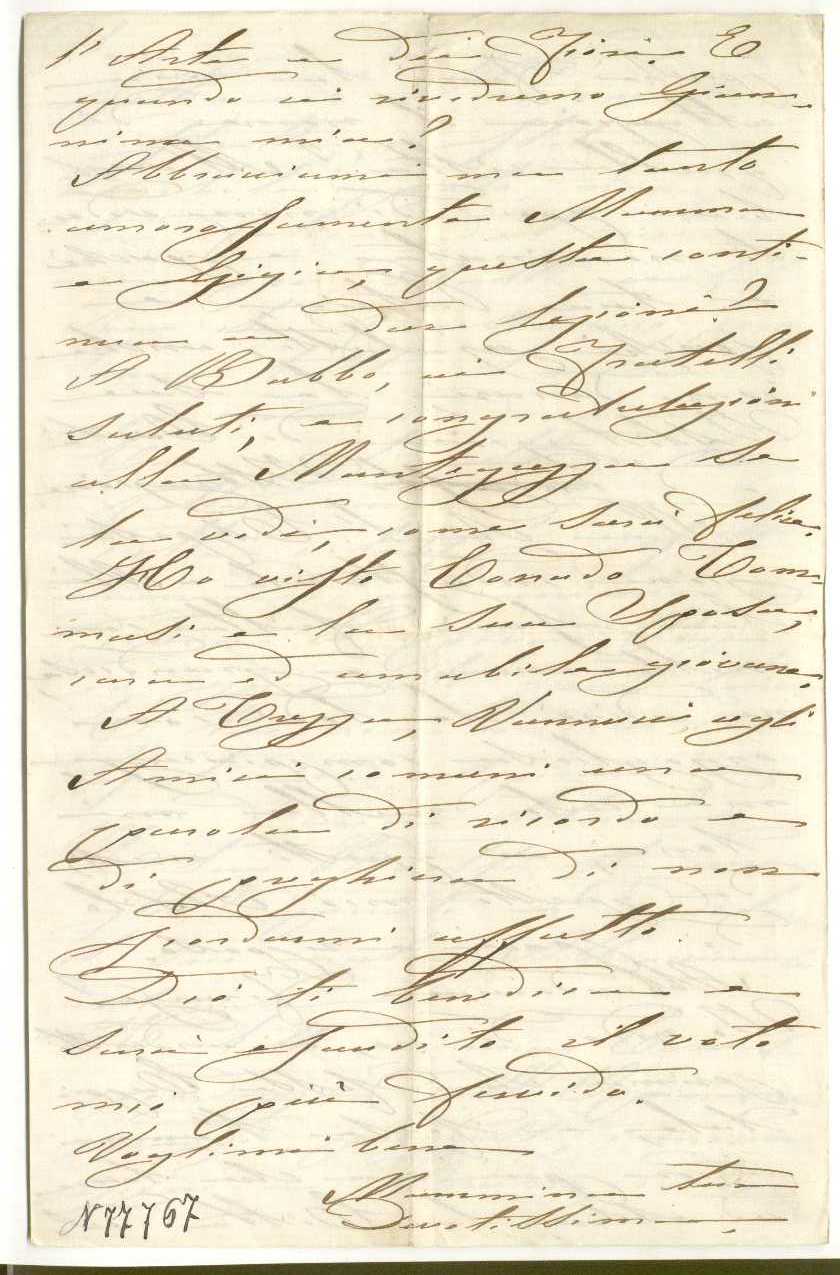 l'Arte e dei Fiori. E
quando ci rivedremo Gian-
nina mia?
Abbracciami ma tanto
amorosamente Mamma
e Gigia, questa conti-
nua a dar lezioni?
A Babbo, ai Fratelli
saluti, e congratulazioni
alla Mantegazza se
la vedi, come sarà felice.
Ho visto Corrado Tom-
masi e la sua Sposa,
cara ed amabile giovane.
A Trezza, Vannucci, agli
Amici comuni una
parola di ricordo e
di preghiera di non
scordarmi affatto.
Dio ti benedica e
sarà esaudito il voto
mio più fervido.
Vogliami bene
Mammina tua
Devotissima
N 77767